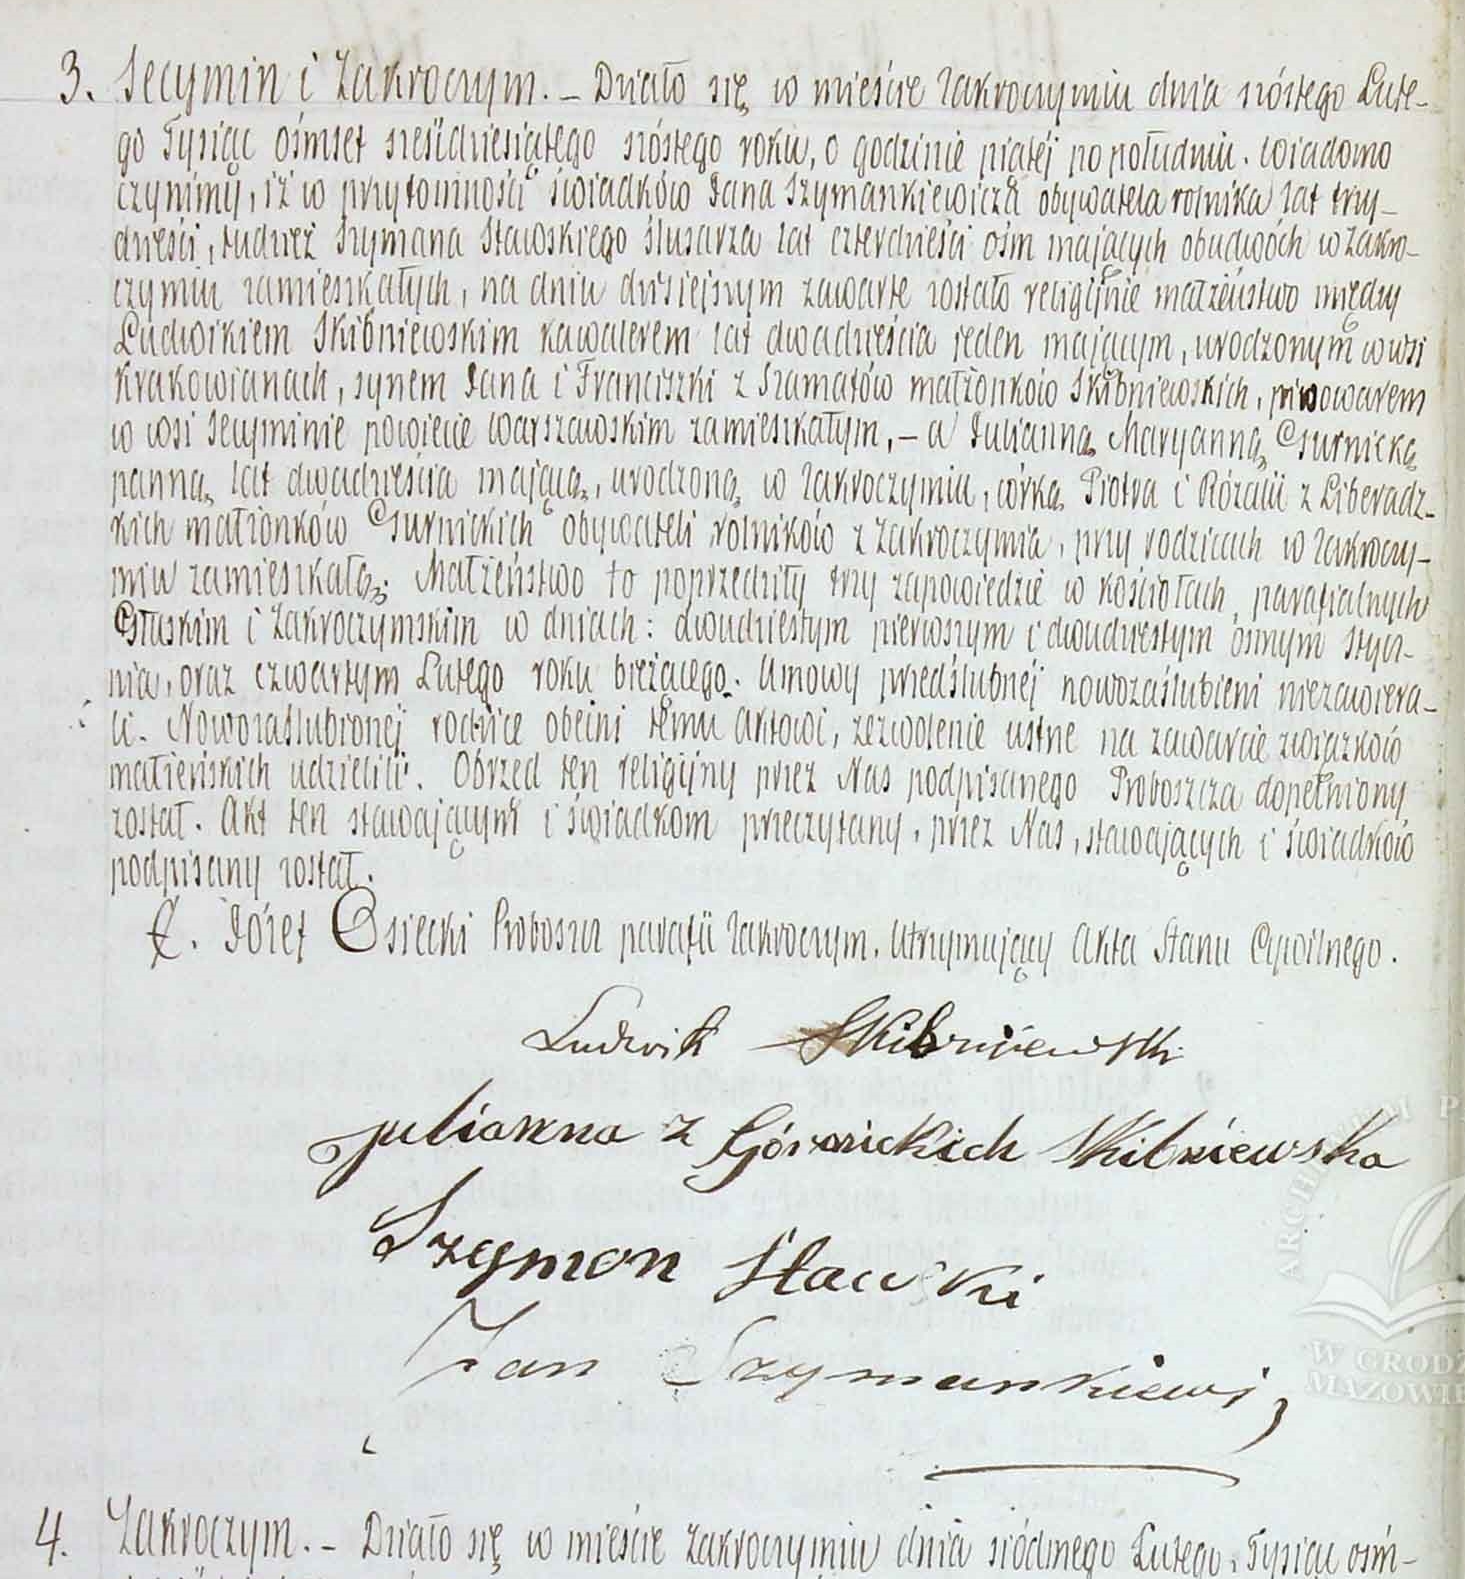 3. Secymin i Zakroczym. – Działo się w mieście Zakroczymiu dnia szóstego Lute-
go Tysiąc ośmset sześćdziesiątego szóstego roku, o godzinie piątej po południu. Wiadomo
czynimy, iż w przytomności świadków Jana Szymankiewicza obywatela rolnika lat trzy-
dzieści, tudzież Szymana Stawskiego ślusarza lat czterdzieści ośm mających obudwóch w Zakro-
czymiu zamieszkałych, na dniu dzisiejszym zawarte zostało religijnie małżeństwo między
Ludwikiem Skibniewskim kawalerem lat dwadzieścia jeden mającym, urodzonym w wsi
Krakowianach, synem Jana i Franciszki z Szamatów małżonków Skibniewskich, piwowarem
w wsi Secyminie powiecie Warszawskim zamieszkałym, – a Julianną Maryanną Gurnicką
panną, lat dwadzieścia mającą, urodzoną w Zakroczymiu, córką Piotra i Rózalii z Liberadz-
kich małżonków Gurnickich obywateli rolników z Zakroczymia, przy rodzicach w Zakroczy-
miu zamieszkałą. Małżeństwo to poprzedziły trzy zapowiedzie w kościołach parafialnych
Głuskim i Zakroczymskim w dniach: dwudziestym pierwszym i dwudziestym ósmym Stycz-
nia, oraz czwartym Lutego roku bieżącego. Umowy przedślubnéj nowozaślubieni niezawiera-
li. Nowozaślubionej rodzice obecni temu Aktowi, zezwolenie ustne na zawarcie związków
małżeńskich udzielili. Obrzęd ten religijny przez Nas podpisanego Proboszcza dopełniony
został. Akt ten stawającym i świadkom przeczytany, przez Nas, stawających i świadków
podpisany został.
X. Józef Osiecki Proboszcz parafii Zakroczym. utrzymujący Akta Stanu Cywilnego.
Ludwik Skibniewski
Julianna z Górnickich Skibniewska
Szymon Stawski
Jan Szymankiewicz
ARCHIWUM P
W GRODZ
MAZOWIE
4. Zakroczym. – Działo się w mieście Zakroczymiu dnia siódmego Lutego, Tysiąc ośm-